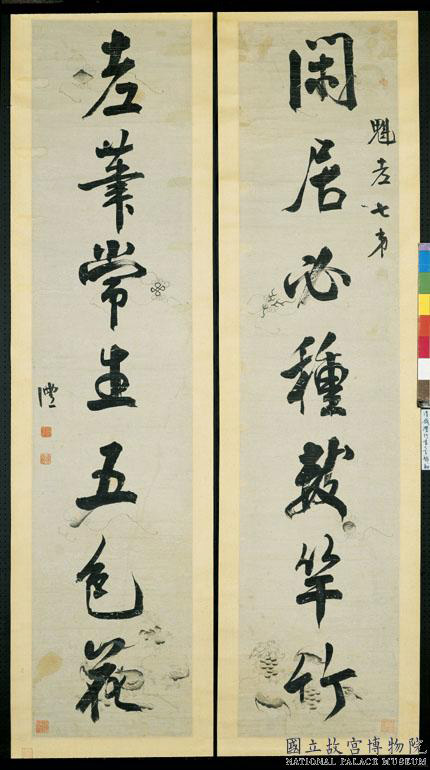 閑居必種數竿竹
魁老七弟
老筆常生五色花
灃
國立故宮博物院
NATIONAL PALACE MUSEUM